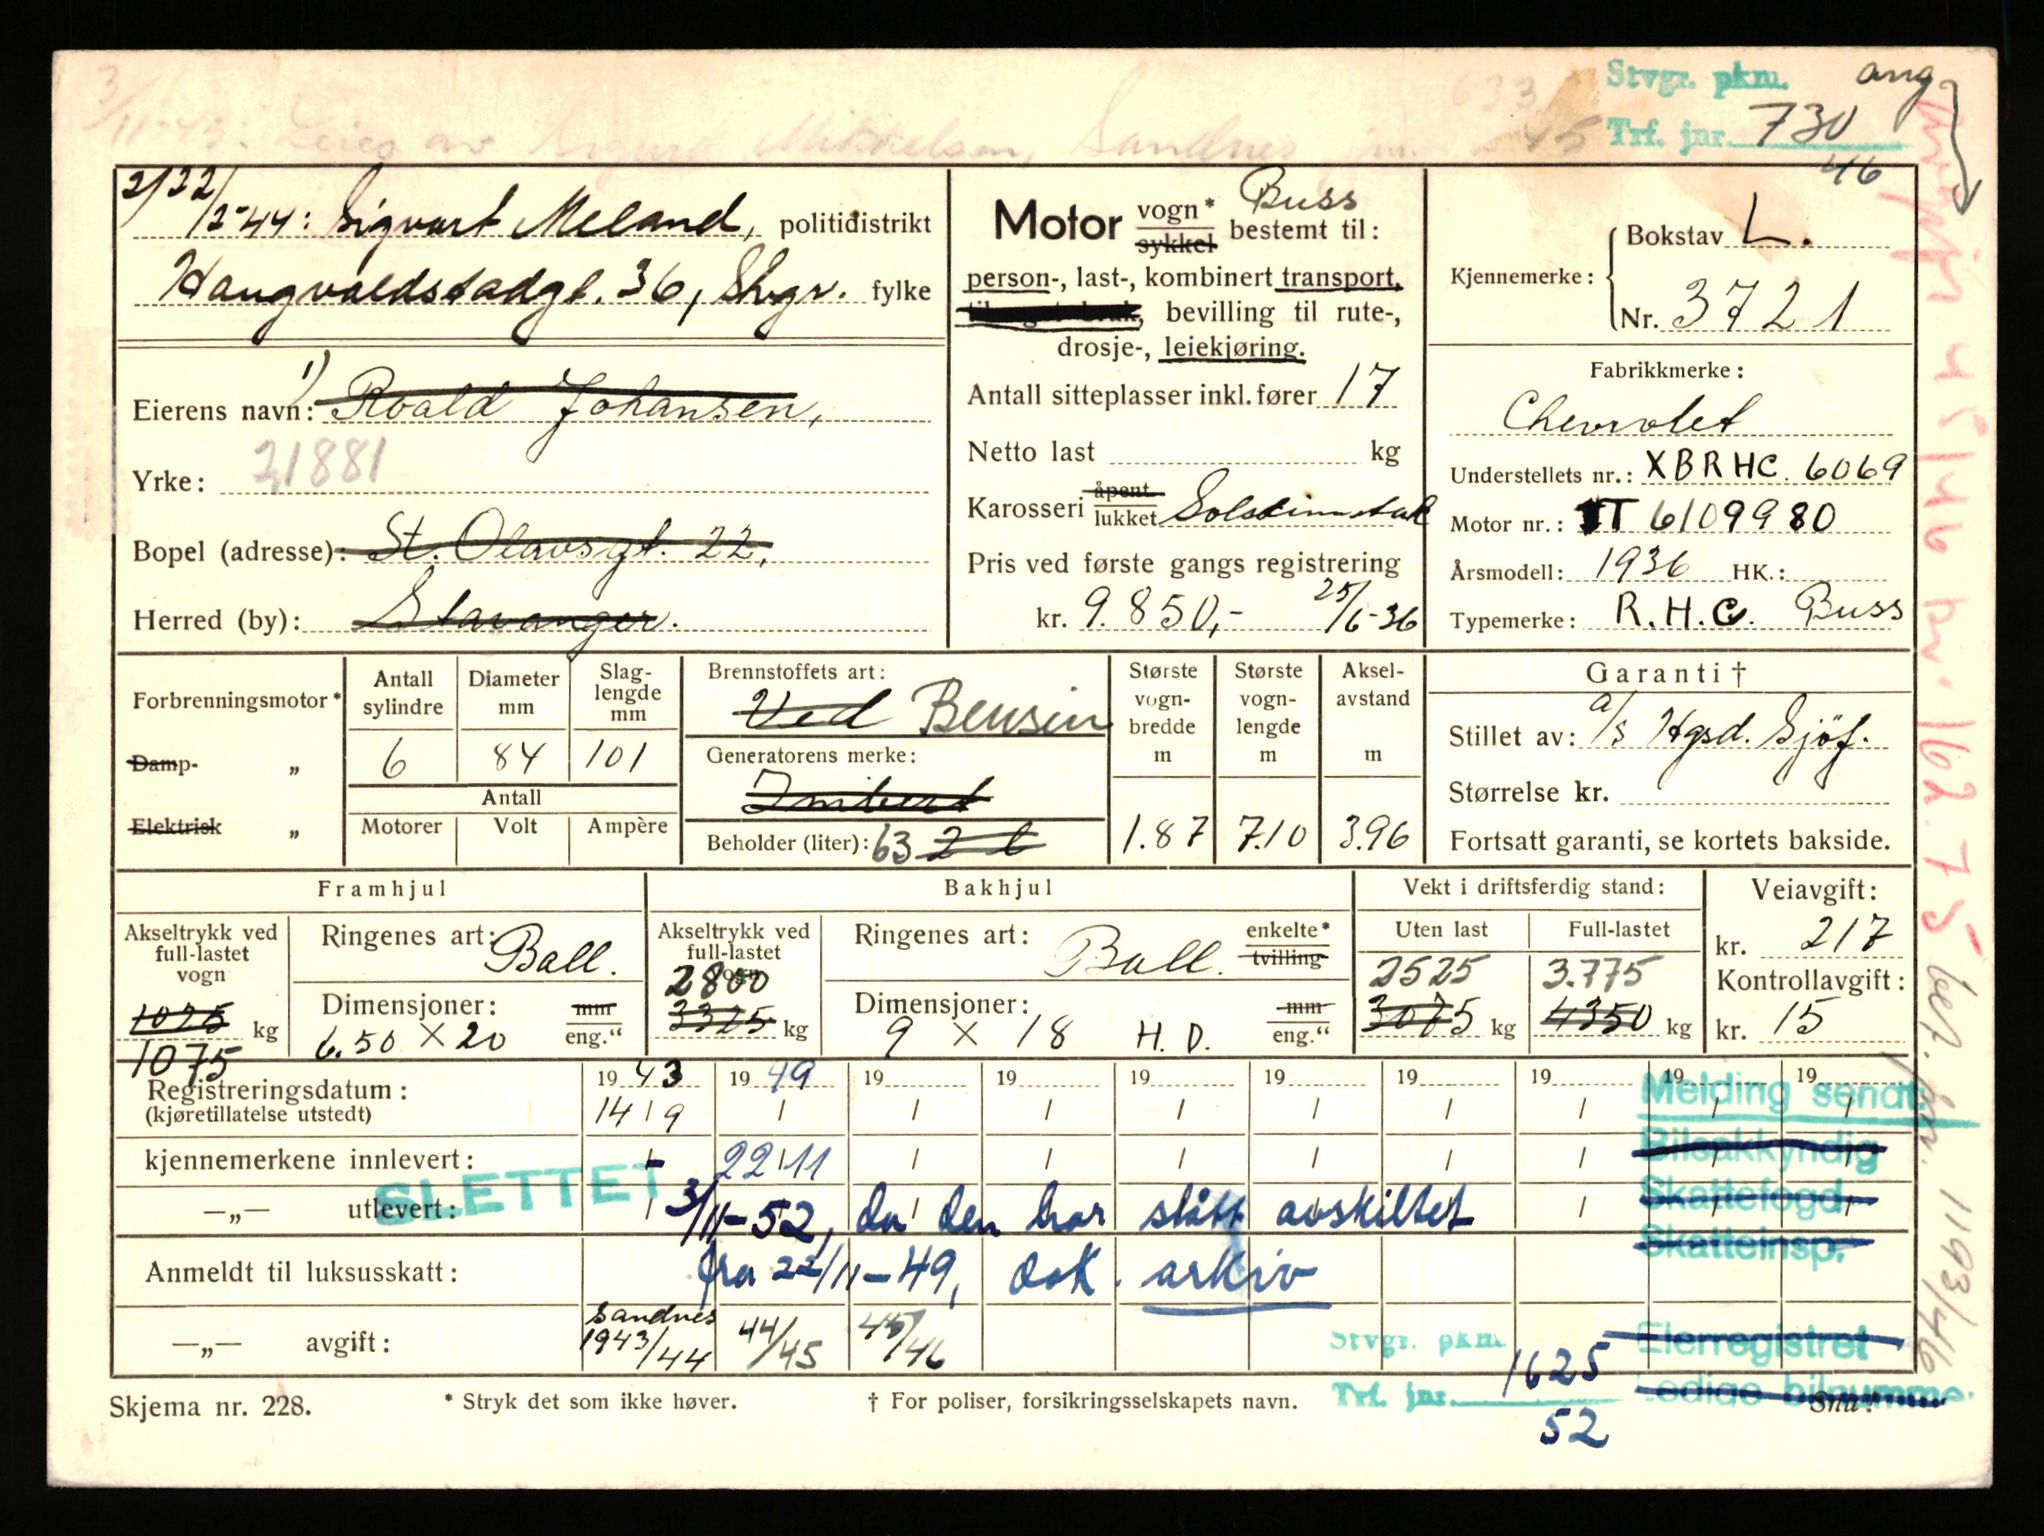 3/11-43. Leies av Sigurd Mikkelsen, Sandnes
45
Stvgr. pkm.
Trf. jnr. 730
46
ang
2/ 22/2-44: Sigvart Meland, politidistrikt
Haugvaldstadgt. 36, Stvgr. fylke
1)
Eierens navn: Roald Johansen,
Yrke: 21881
Bopel (adresse): St. Olavsgt. 22,
Herred (by): Stavanger.
Motor vogn* sykkel bestemt til: Buss
person-, last-, kombinert transport,
bevilling til rute-,
drosje-, leiekjøring.
Antall sitteplasser inkl. fører 17
Netto last kg
Karosseri åpent lukket Solskinnstak
Pris ved første gangs registrering
kr. 9.850,- 25/6-36
Kjennemerke: Bokstav L.
Nr. 3721
Fabrikkmerke:
Chevrolet
Understellets nr.: XBRHC. 6069
Motor nr.: T 6109980
Årsmodell: 1936 HK.:
Typemerke: R.H.C. Buss
Forbrenningsmotor*
Damp- „
Elektrisk „
Antall sylindre
Diameter mm
Slag-lengde mm
6 84 101
Antall
Motorer Volt Ampère
Brennstoffets art:
Ved Bensin
Generatorens merke:
Imbert
Beholder (liter): 63 2 l
Største vogn-bredde m
1.87
Største vogn-lengde m
7.10
Aksel-avstand m
3.96
Garanti †
Stillet av: A/S Hgsd. Sjöf.
Størrelse kr.
Fortsatt garanti, se kortets bakside.
Framhjul
Akseltrykk ved full-lastet vogn
1025 kg
1075
Ringenes art: Ball.
Dimensjoner: mm
6.50 × 20 eng.“
Bakhjul
Akseltrykk ved full-lastet vogn
2800
3325 kg
Ringenes art: Ball. enkelte* tvilling
Dimensjoner: mm
9 × 18 H.D. eng.“
Vekt i driftsferdig stand:
Uten last Full-lastet
2525 3.775
3075 kg 4350 kg
Veiavgift:
kr. 217
Kontrollavgift:
kr. 15
Registreringsdatum: 1943 1949 19 19 19 19 19 19 19 19
(kjøretillatelse utstedt) 14/9
kjennemerkene innlevert: - 22/11
SLETTET
—„— utlevert: 3/11-52, da den har stått avskiltet
Anmeldt til luksusskatt: fra 22/11-49, dok. arkiv
—„— avgift: Sandnes 1943/44 44/45 45/46
Melding sendt
Bilsakkyndig
Skattefogd
Skatteinsp.
Eierregistret
Ledige bilnumme
Stvgr. pkm.
Trf. jnr. 1625
52
Skjema nr. 228. * Stryk det som ikke høver. † For poliser, forsikringsselskapets navn. Snu!
4/5/46 kr. 162.75 bet. jnr. 1193/46